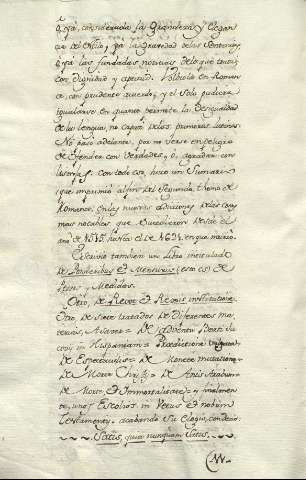 ò yá, considerada la Grandeza, y Elegan
cia de Estilo, yá la Gravedad de las Sentencias,
ò yá las fundadas noticias de lo que trata,
con dignidad y aprecio. Volviolo en Roman
ce, con prudente acuerdo, y el Solo pudiera
igualarse en quanto permite la desigualdad
de las lenguas, no capaz de los primeros
No pasó adelante, por no verse en peligro
de ofender con verdades, o, agradar con
lisonjas. Con todo eso, hizo un Sumario
que imprimió al fin del Segundo thomo de
Romance, en las nuevas adiciones de las cosas
mas notables, que Sucedieron desde el
año de 1515, hasta el de 1621, en que murió.
Escrivió tambien un Libro intitulado
de Ponderibus et Mensuris (esto es) de
Pesos y Medidas.
Otro, de Rege et Regis institutione
Otro de siete tratados de Diferentes ma
terias, A saver = de Adventu Beati Ja
cobi in Hispaniam = Proeditione Vulgata
De Espectaculis = De Monete mutatione
De Morte Christi = De Annis Arabum
De Morte, et Immortalitate = y finalmen
te, unos Escolios in Vetus et nobum
Testamentum, acabando Su Elogio, con decir
Satis, quia nunquam Satis.